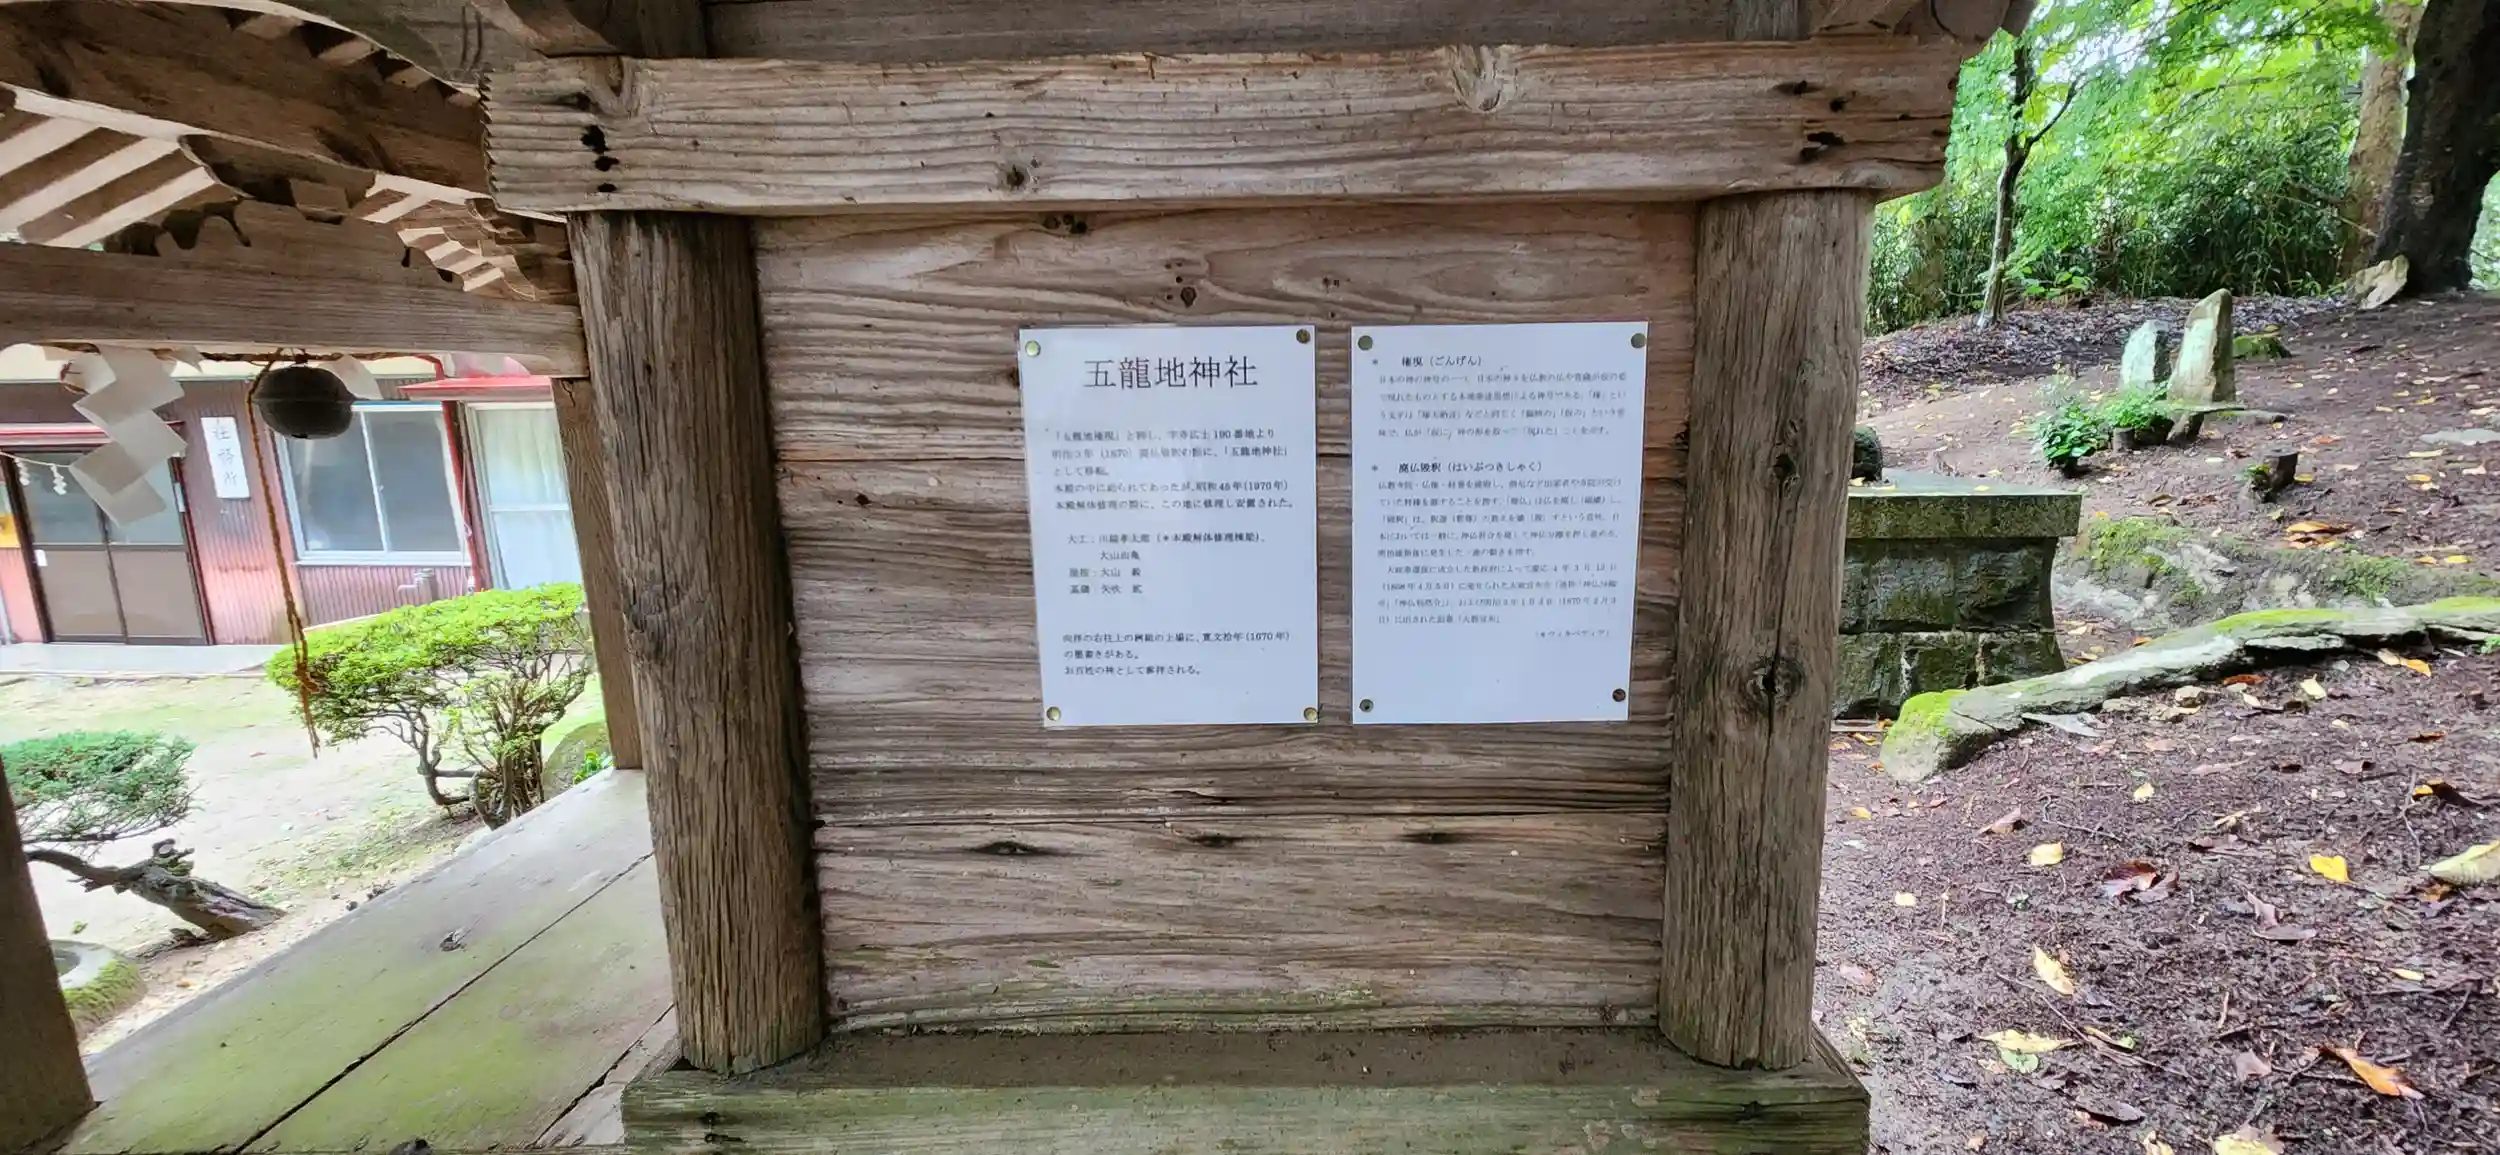 社務所
五龍地神社
「五龍地権現」と称し、字寺広土190番地より
明治3年（1870）廃仏毀釈の際に、「五龍地神社」
として移転。
本殿の中に祀られてあったが、昭和45年(1970年)
本殿解体修理の際に、この地に修理し安置された。
大工：川端孝太郎（＊本殿解体修理棟梁）、
大山出亀
屋根：大山
基礎：矢吹
向拝の右柱上の桝組の上端に、寛文拾年(1670年)
の墨書きがある。
お百姓の神として崇拝される。
＊ 権現（ごんげん）
日本の神の神号の一つ。日本の神々を仏教の仏や菩薩が仮の姿
で現れたものとする本地垂迹思想による神号である。「権」とい
う文字は「権大納言」などと同じく「臨時の」「仮の」という意
味で、仏が「仮に」神の形を取って「現れた」ことを示す。
＊ 廃仏毀釈（はいぶつきしゃく）
仏教寺院・仏像・経巻を破毀し、僧尼など出家者や寺院が受け
ていた特権を廃することを指す。「廃仏」は仏を廃し（破壊）し、
「毀釈」は、釈迦（釈尊）の教えを壊（毀）すという意味。日
本においては一般に、神仏習合を廃して神仏分離を押し進める、
明治維新後に発生した一連の動きを指す。
大政奉還後に成立した新政府によって慶応4年3月13日
（1868年4月5日）に発せられた太政官布告「通称「神仏分離
令」「神仏判然令」」、および明治3年1月3日（1870年2月3
日）に出された詔書「大教宣布」
（＊ウィキペディア）